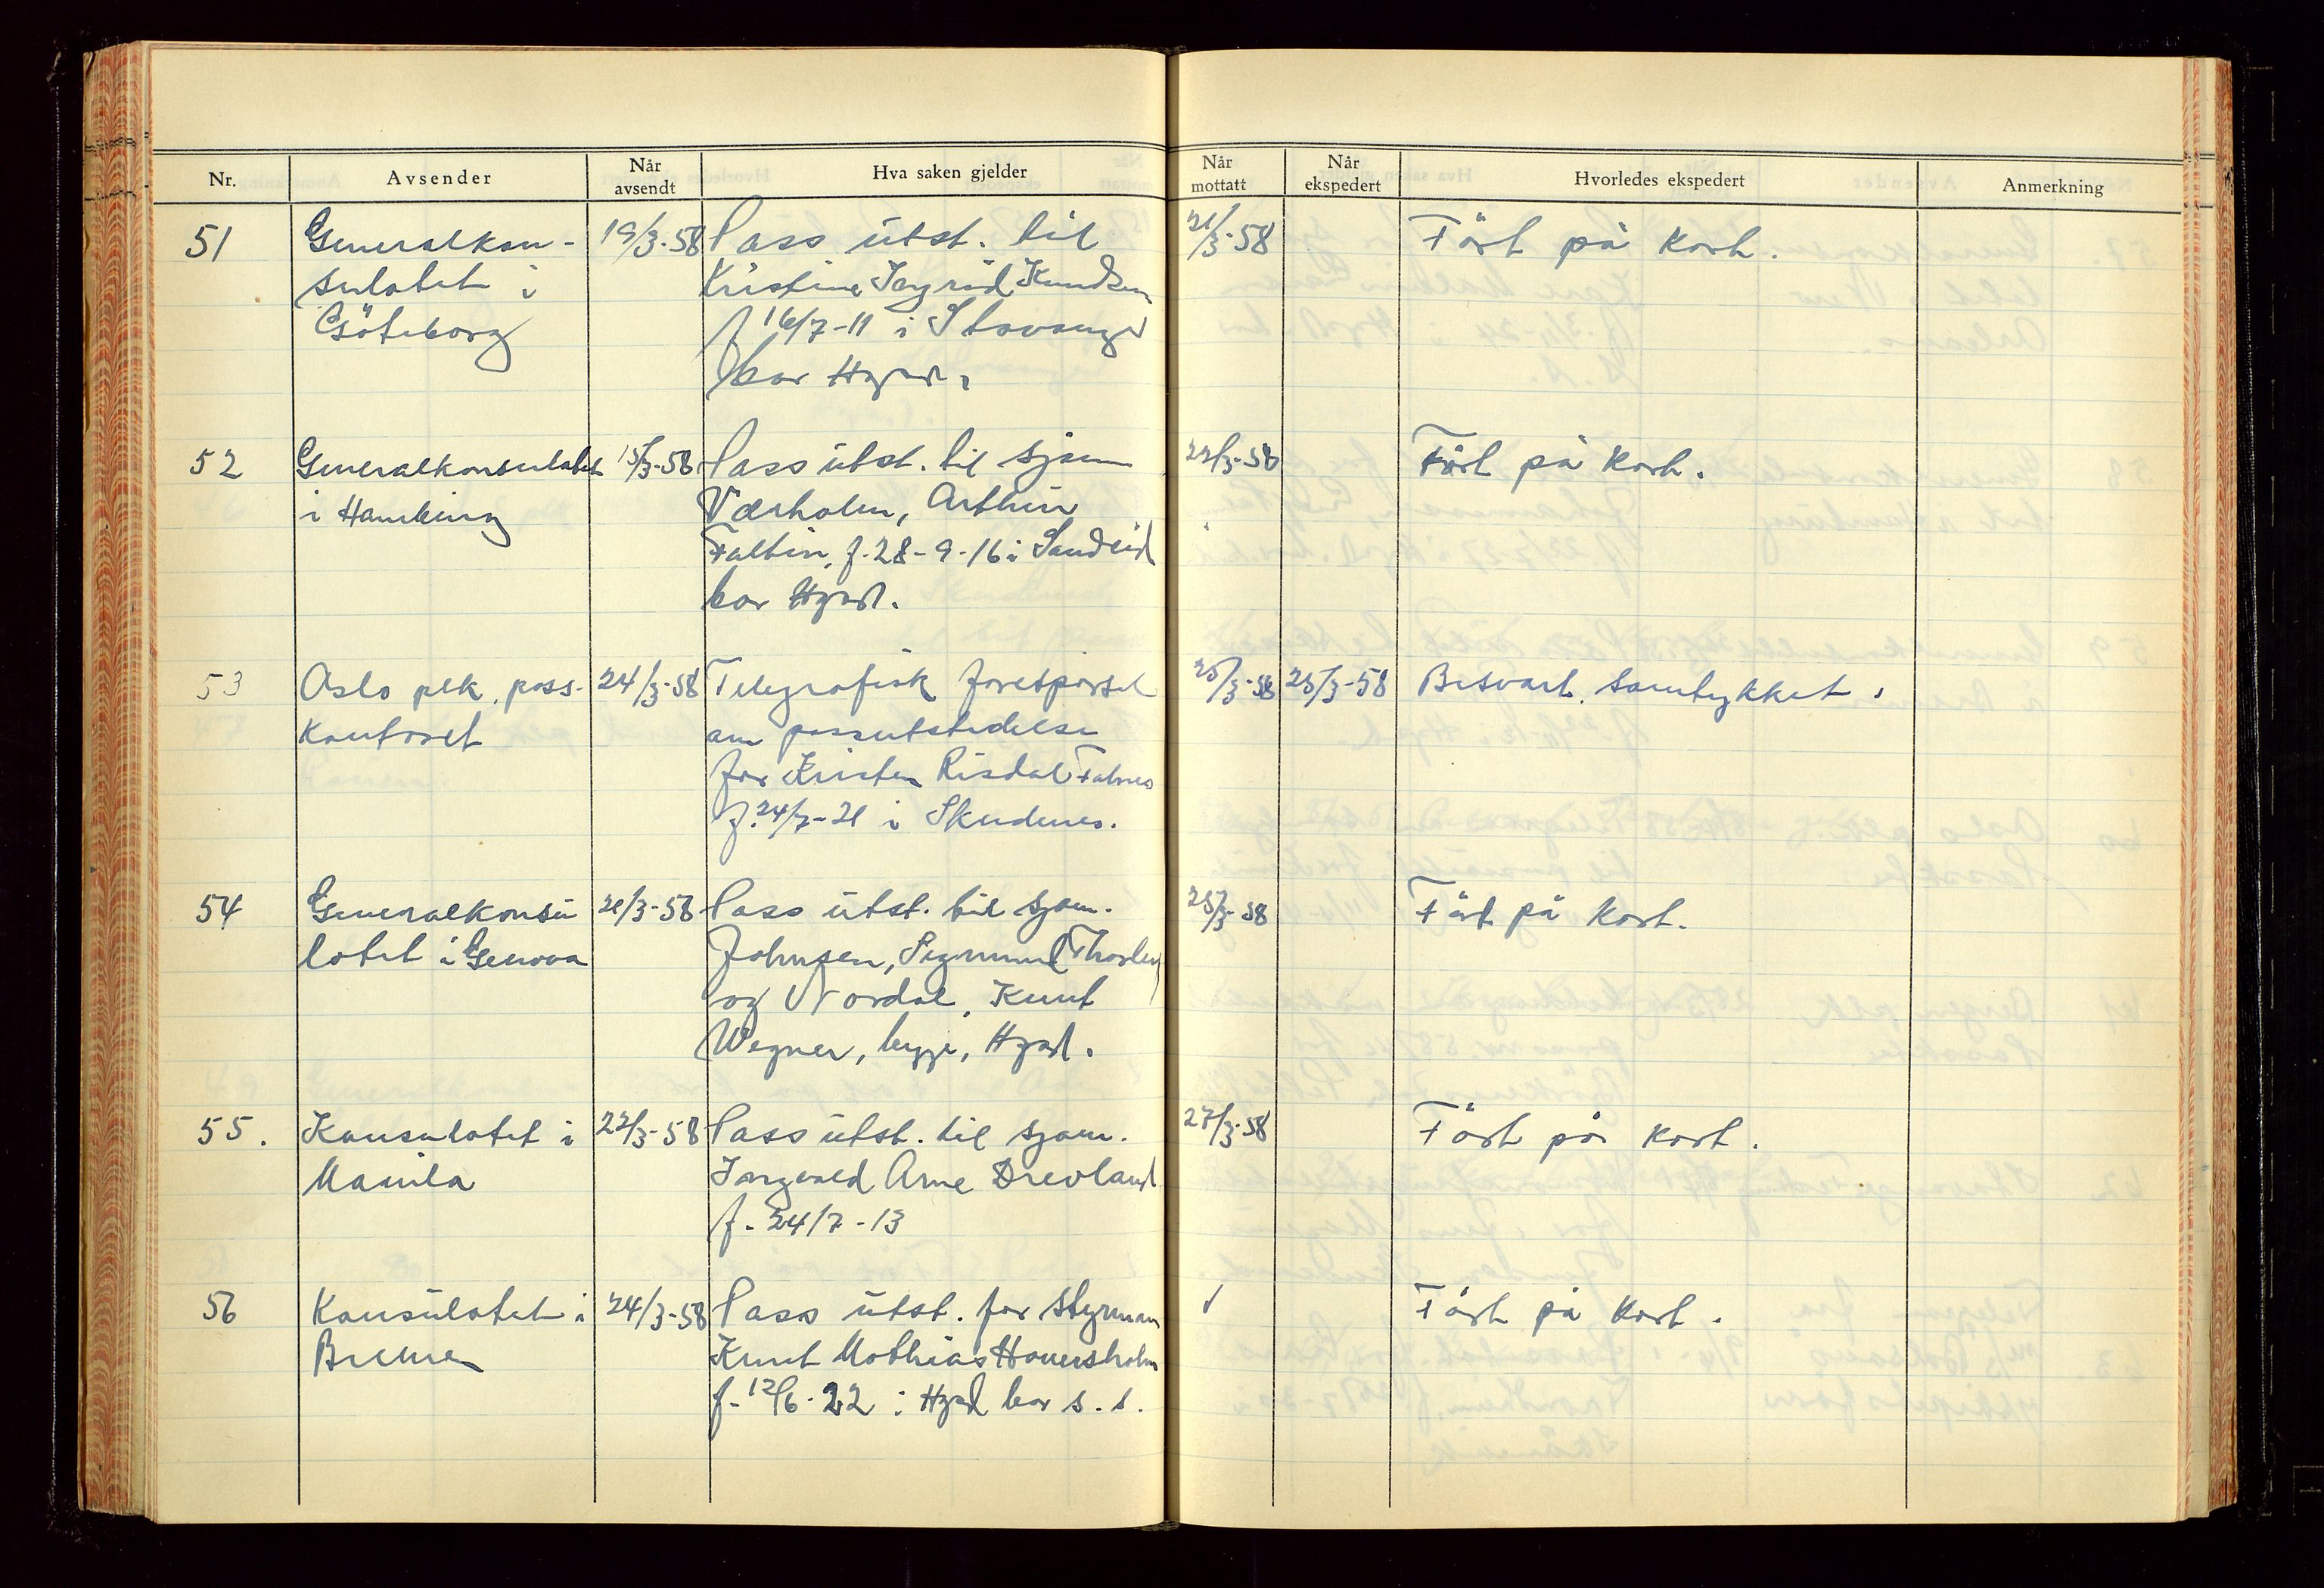 Nr. Avsender Når avsendt Hva saken gjelder Når mottatt Når ekspedert Hvorledes ekspedert Anmerkning
51 Generalkon- 19/3-58 Pass utst. til 21/3-58 Fört på kort.
sulatet i Kristine Ingrid Knudsen
Göteborg f 16/7-11 i Stavanger
bor Hgsd.
52 Generalkonsulatet 15/3-58 Pass utst. til sjøm 22/3-58 Fört på kort.
i Hamburg Værholm, Arthur
Faltin, f. 28-9-16 i Sandeid
bor Hgsd.
53 Oslo plk. pass- 24/3-58 Telegrafisk forespørsel 25/3-58 25/3-58 Besvart samtykket.
kontoret om passutstedelse
for Kristen Risdal Falnes
f. 24/7-21 i Skudenes.
54 Generalkonsu 21/3-58 Pass utst. til sjøm. 25/3-58 Fört på kort.
latet i Genova Johnsen, Sigmund
og Nordal, Knut
Wegner, begge, Hgsd.
55. Konsulatet i 22/3-58 Pass utst. til sjøm. 27/3-58 Fört på kort.
Manila Ingvald Arne Drevland
f. 24/7-13
56 Konsulatet i 24/3-58 Pass utst. for styrman Fört på kort.
Bremen Knut Mathias
f. 12/6-22 i Hgsd bor s.s.